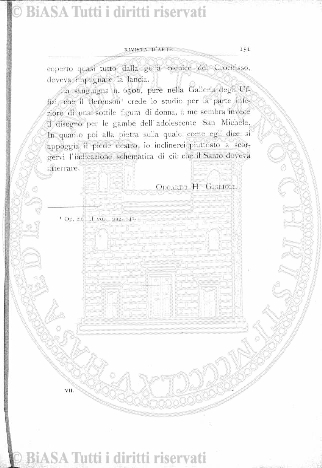 © BiASA Tutti i diritti riservati
RIVISTA D'ARTE 151
coperto quasi tutto dalla
doveva impugnare la lancia.
La sanguigna n. pure nella Galleria degli Uf-
fizi, che il crede lo studio per la parte infe-
riore di una sottile figura di donna, a me sembra invece
il disegno per le gambe dell'adolescente San Michele.
In quanto poi alla pietra sulla quale come egli dice si
appoggia il piede destro, io inclinerei piuttosto a scor-
gervi l'indicazione schematica di ciò che il Santo doveva
atterrare.
H.
VII
© BiASA Tutti i diritti riservati